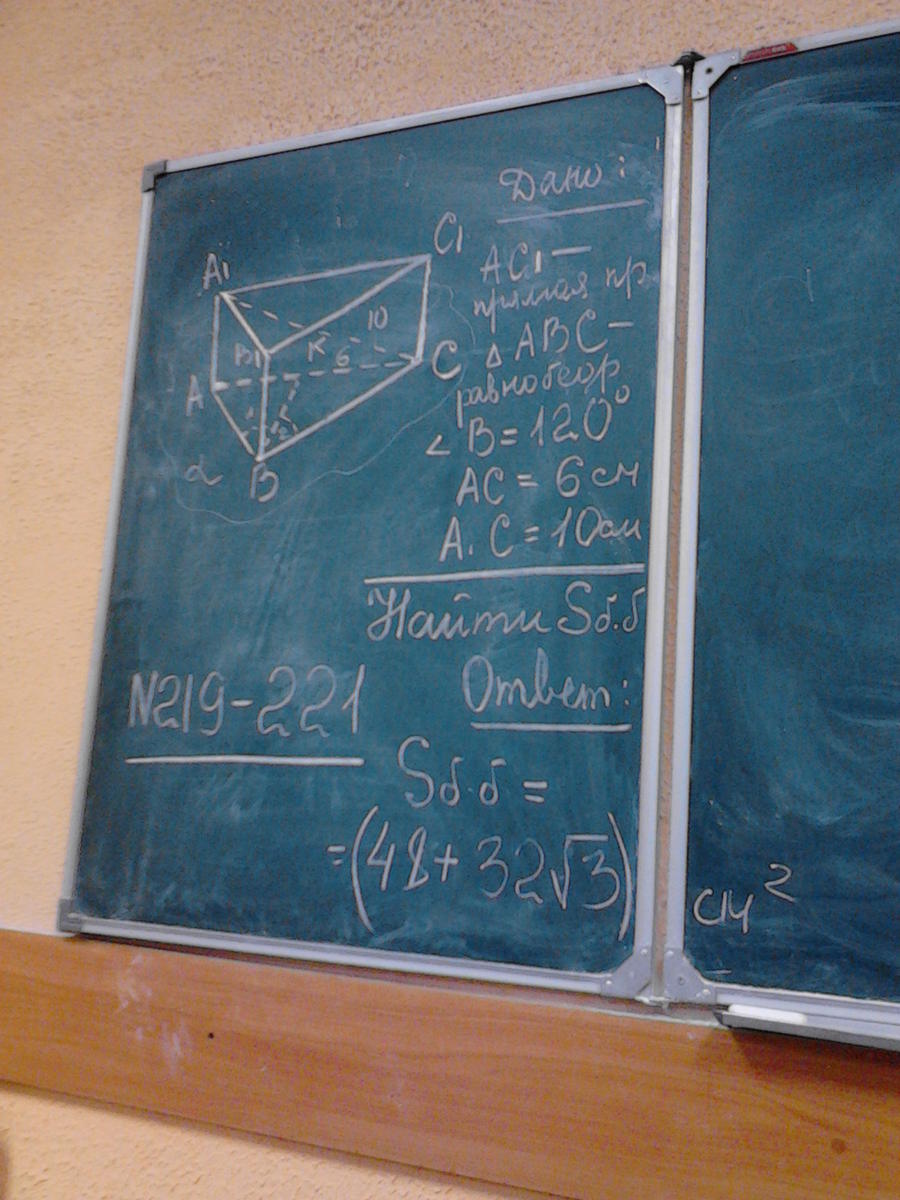 Дано:
AC₁ —
прямая пр.
△ABC —
равнобедр
∠B = 120°
AC = 6 см
A₁C = 10 см
Найти Sб.б
Ответ:
Sб.б =
= (48 + 32√3) см²
N219-221
A₁
C₁
10
B₁
K
6
C
A
α
B